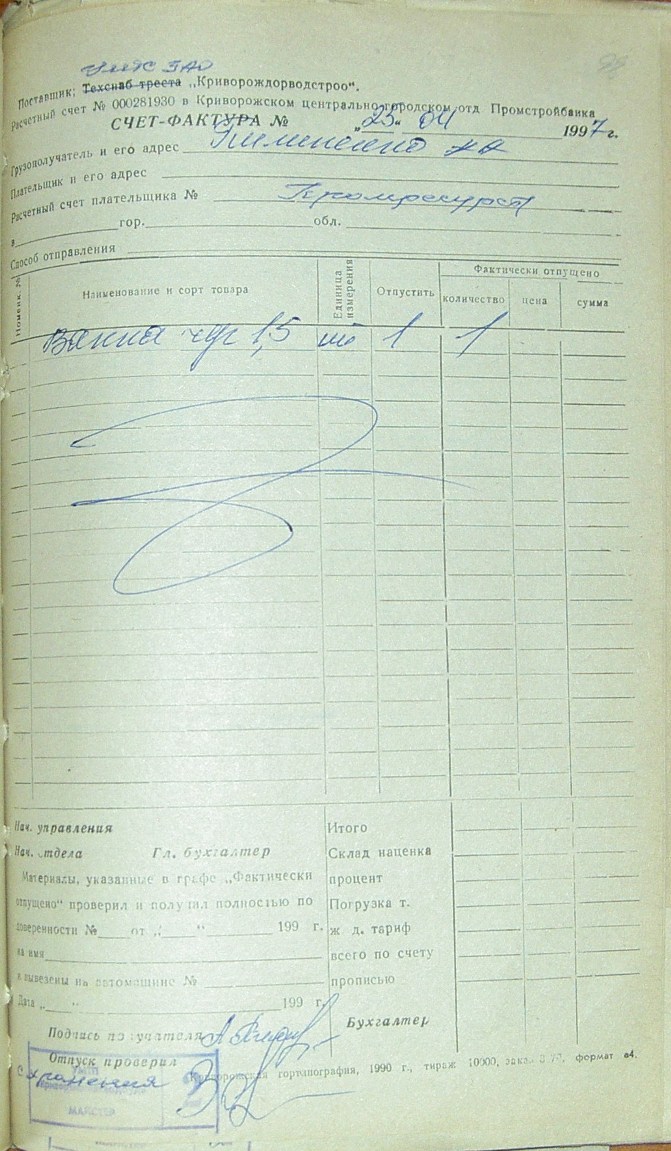 Поставщик: Техснаб треста „Криворождорводстроо".
Расчетный счет № 000281930 в Криворожском центрально-городском отд Промстройбанка
СЧЕТ-ФАКТУРА № „25" 04 1997 г.
Грузополучатель и его адрес
Плательщик и его адрес
Расчетный счет плательщика №
в гор. обл.
Способ отправления
Номенк. № Наименование и сорт товара Единица измерения Отпустить Фактически отпущено
количество цена сумма
Ванна чуг 1,5 шт 1 1
Нач. управления Итого
Нач. отдела Гл. бухгалтер Склад наценка
Материалы, указанные в графе „Фактически процент
отпущено" проверил и получил полностью по Погрузка т.
доверенности № от „ " 199 г. ж д. тариф
на имя всего по счету
и вывезены на автомашине № прописью
Дата „ " 199 г.
Подпись получателя Бухгалтер
Отпуск проверил
Криворожская гортипография, 1990 г., тираж 10000, заказ формат а4.
С хранения
МАЙСТЕР